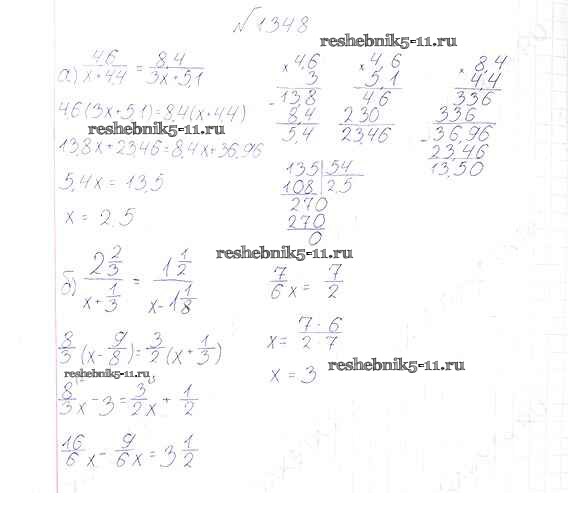 №1348
reshebnik5-11.ru
а) 4,6/(x+4,4) = 8,4/(3x+5,1)
4,6(3x+5,1)=8,4(x+4,4)
reshebnik5-11.ru
13,8x+23,46=8,4x+36,96
5,4x = 13,5
x = 2,5
× 4,6
3
- 13,8
8,4
5,4
× 4,6
5,1
46
230
23,46
× 8,4
4,4
336
336
- 36,96
23,46
13,50
135 | 54
108 | 2,5
270
270
0
reshebnik5-11.ru
б) 2 2/3 / (x + 1/3) = 1 1/2 / (x - 1 1/8)
8/3 (x - 9/8) = 3/2 (x + 1/3)
reshebnik5-11.ru
8/3 x - 3 = 3/2 x + 1/2
16/6 x - 9/6 x = 3 1/2
7/6 x = 7/2
x = 7·6 / 2·7
x = 3
reshebnik5-11.ru